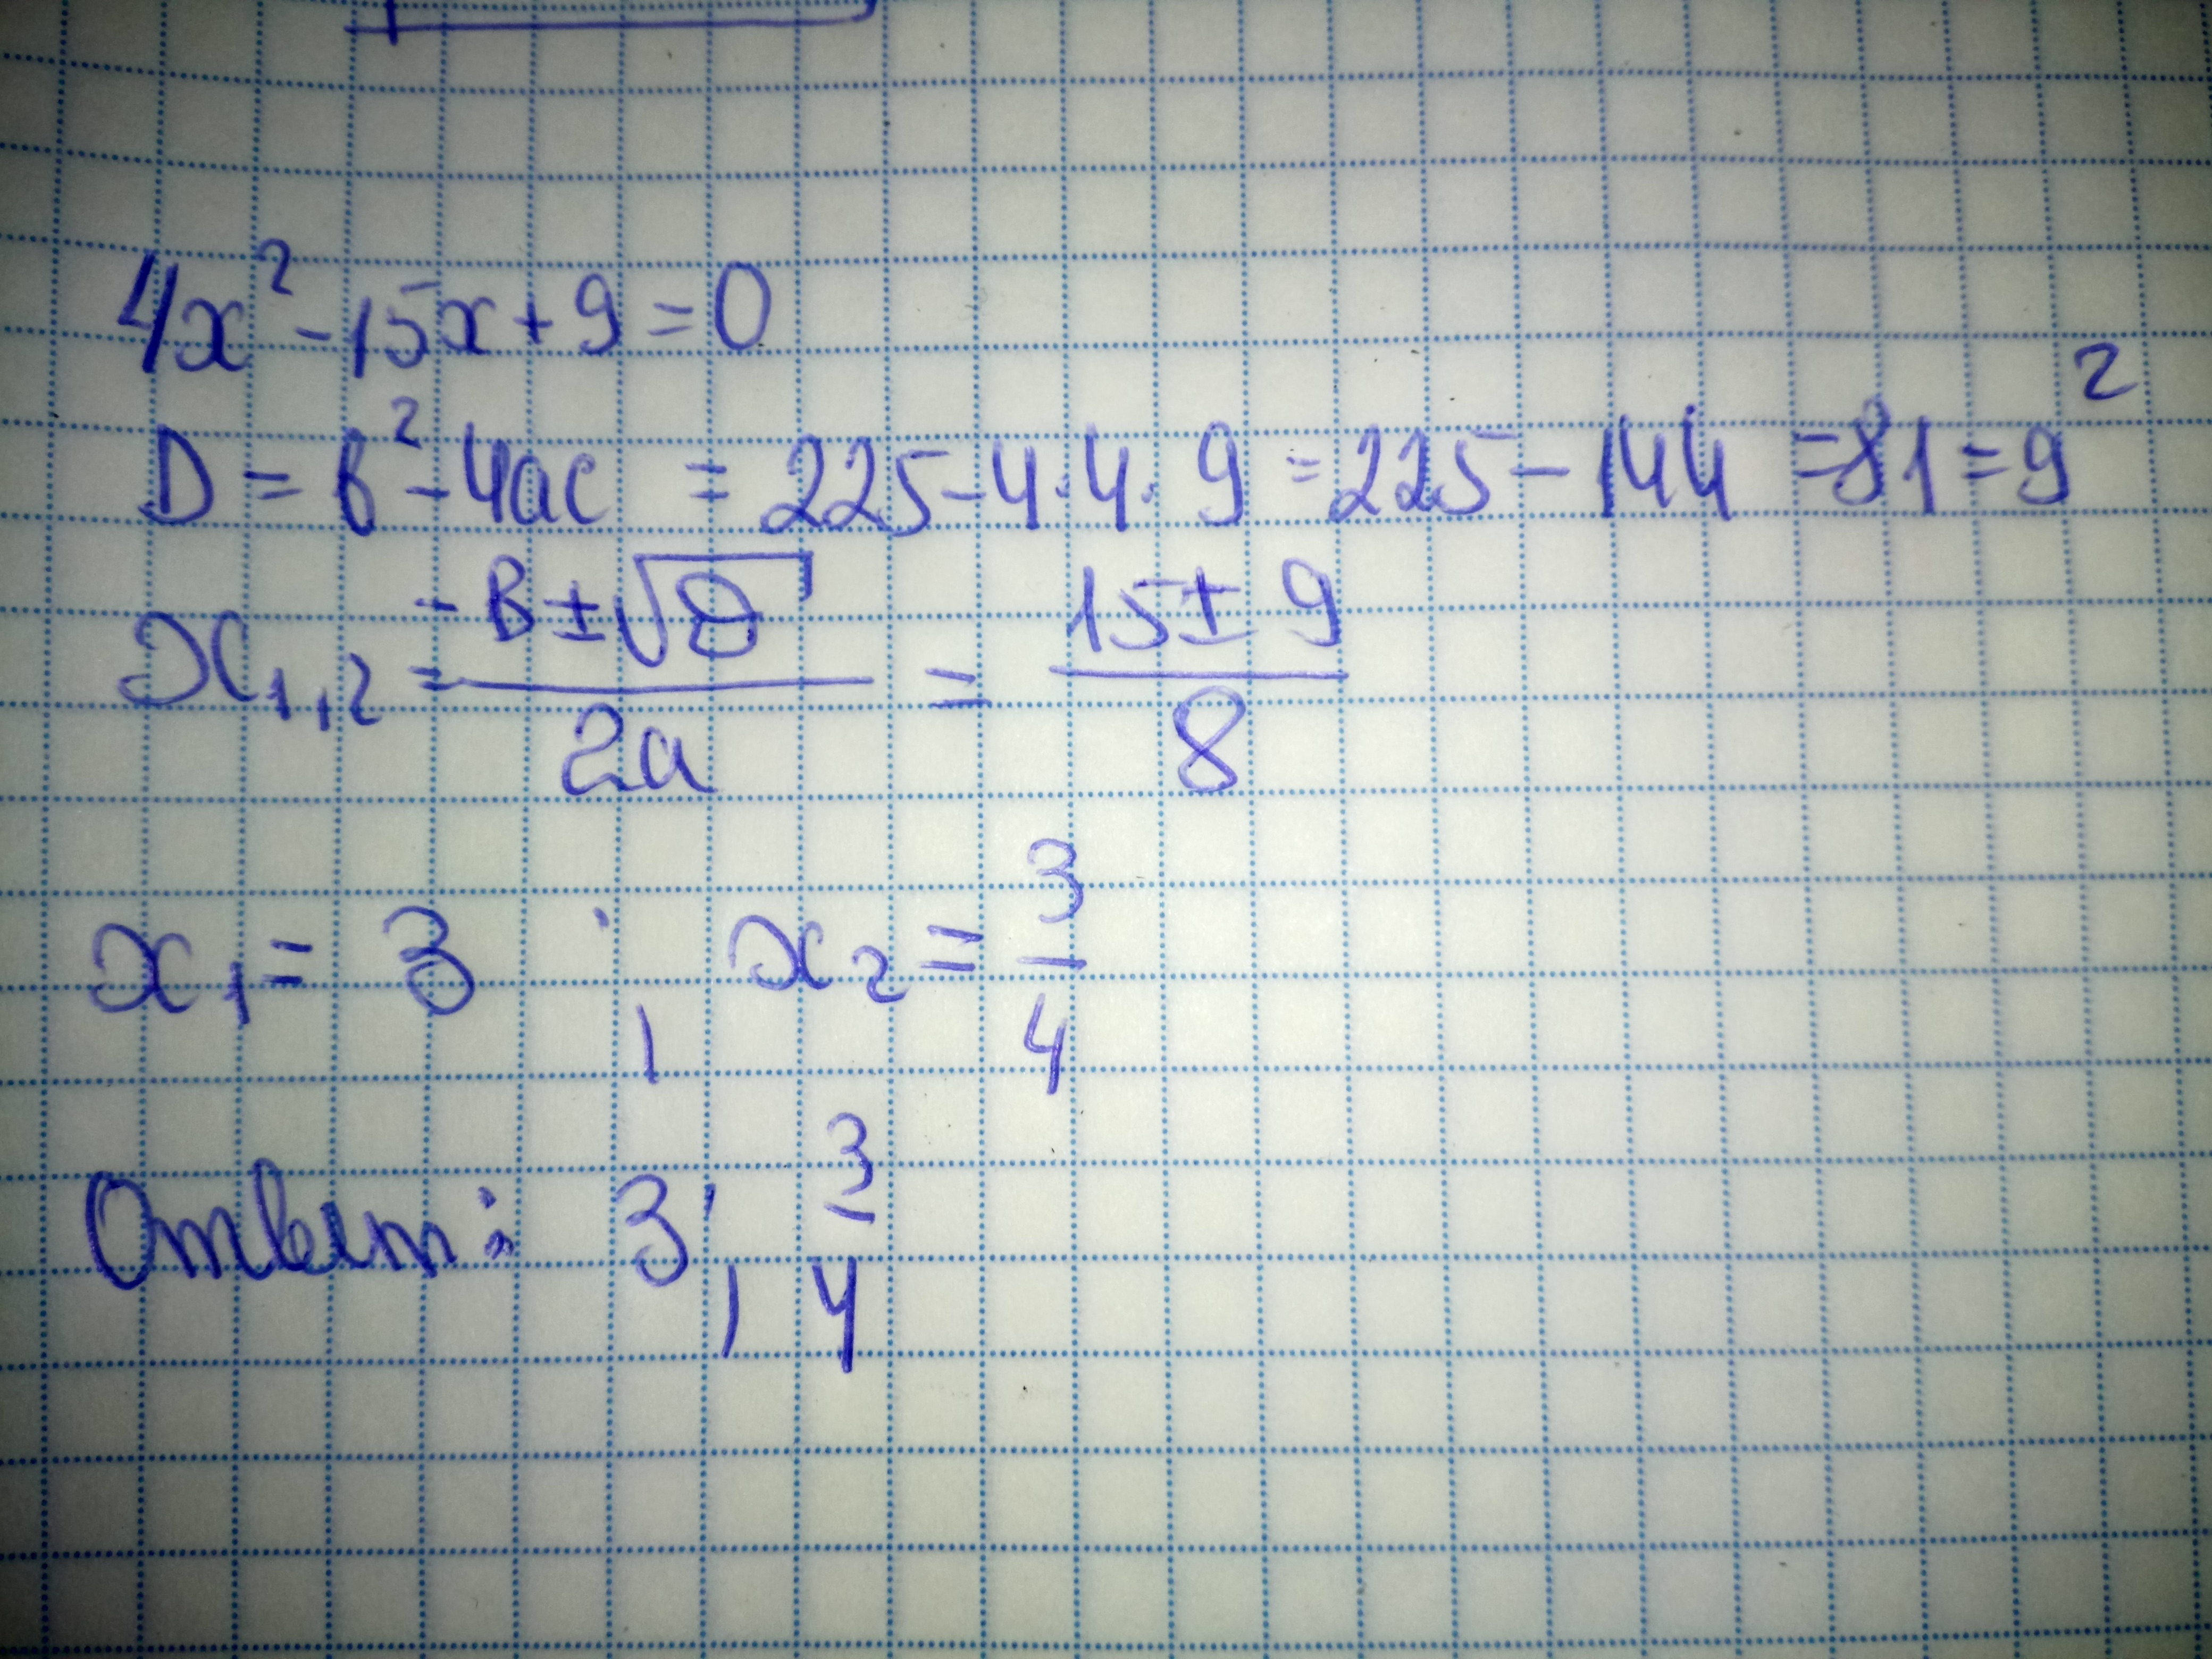 4x² - 15x + 9 = 0
D = b² - 4ac = 225 - 4·4·9 = 225 - 144 = 81 = 9²
x₁,₂ = (-b ± √D) / 2a = (15 ± 9) / 8
x₁ = 3 ; x₂ = 3/4
Ответ: 3; 3/4